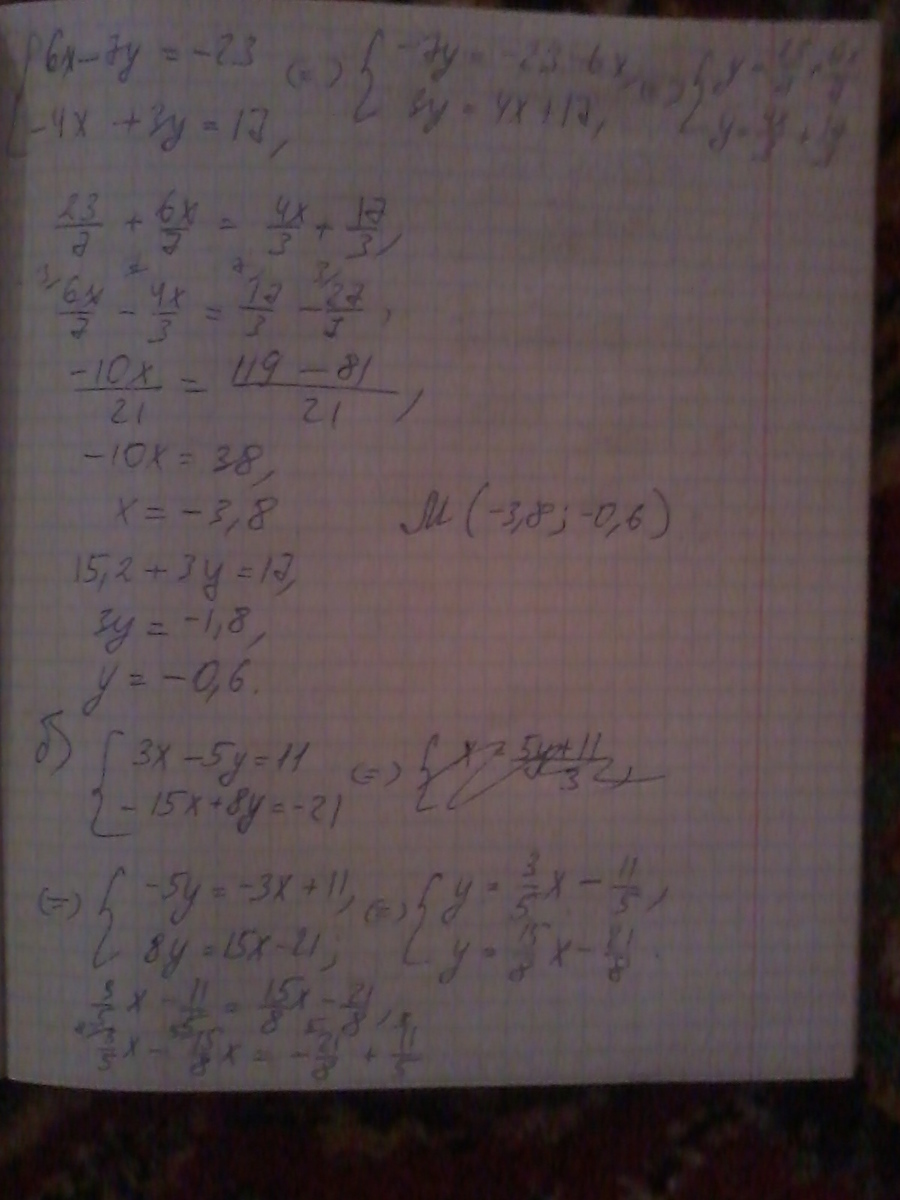 { 6x - 7y = -23
-4x + 3y = 17, (=) { -7y = -23 - 6x, 3y = 4x + 17, (=) {
23/7 + 6x/7 = 4x/3 + 17/3,
6x/7 - 4x/3 = 17/3 -
-10x/21 = 119 - 81/21,
-10x = 38,
x = -3,8 M (-3,8; -0,6)
15,2 + 3y = 17,
3y = -1,8,
y = -0,6.
б) { 3x - 5y = 11
-15x + 8y = -21 (=)
(=) { -5y = -3x + 11, (=) { y = 3/5 x - 11/5,
8y = 15x - 21; y = 15/8 x - 21/8.
3/5 x - 11/5 = 15/8 x - 21/8,
3/5 x - 15/8 x = - 21/8 + 11/5